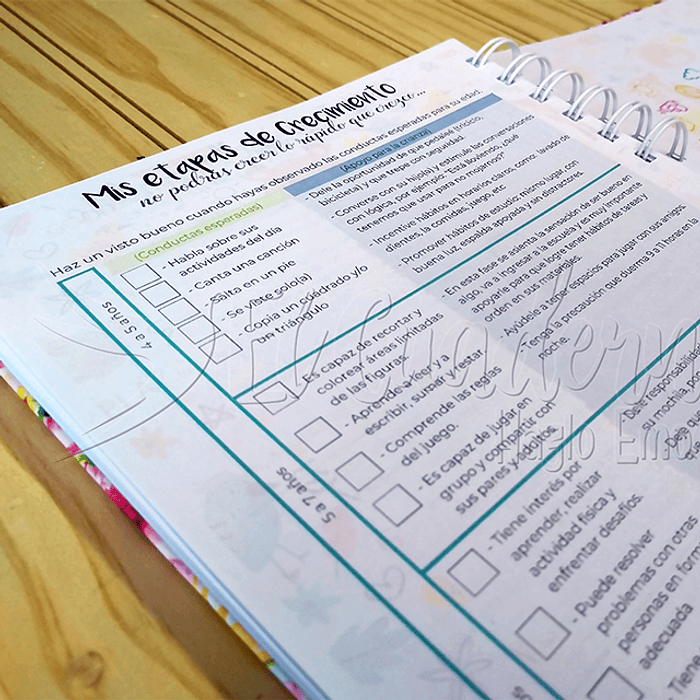 Mis etapas de Crecimiento
no podrás creer lo rápido que crezco...
Haz un visto bueno cuando hayas observado las conductas esperadas para su edad.
(Conductas esperadas)
(Apoyo para la crianza)
4 a 5 años
- Habla sobre sus
actividades del día
- Canta una canción
- Salta en un pie
- Se viste solo(a)
- Copia un cuadrado y/o
un triángulo
- Dele la oportunidad de que pedaleé (triciclo,
bicicleta), y que trepe con seguridad.
- Converse con su hijo(a) y estimule las conversaciones
con lógica, por ejemplo: "Está lloviendo, ¿qué
tenemos que usar para no mojarnos?"
- Incentive hábitos en horarios claros, como: lavado de
dientes, la comidas, juego, etc.
- Promover hábitos de estudio: mismo lugar con
buena luz, espalda apoyada y sin distractores.
5 a 7 años
- Es capaz de recortar y
colorear áreas limitadas
de las figuras.
- Aprende a leer y a
escribir, sumar y restar.
- Comprende las reglas
del juego.
- Es capaz de jugar en
grupo y compartir con
sus pares y adultos.
- En esta fase se asienta la sensación de ser bueno en
algo, va a ingresar a la escuela y es muy importante
apoyarle para que logre tener hábitos de tareas y
orden en sus materiales.
- Ayúdele a tener espacios para jugar con sus amigos.
- Tenga la precaución que duerma 9 a 11 horas en
noche.
- Tiene interés por
aprender, realizar
actividad física y
enfrentar desafíos.
- Puede resolver
problemas con otras
personas en
adecuada
- Tiene
- Dele responsabilidad
su mochila,
Hazlo